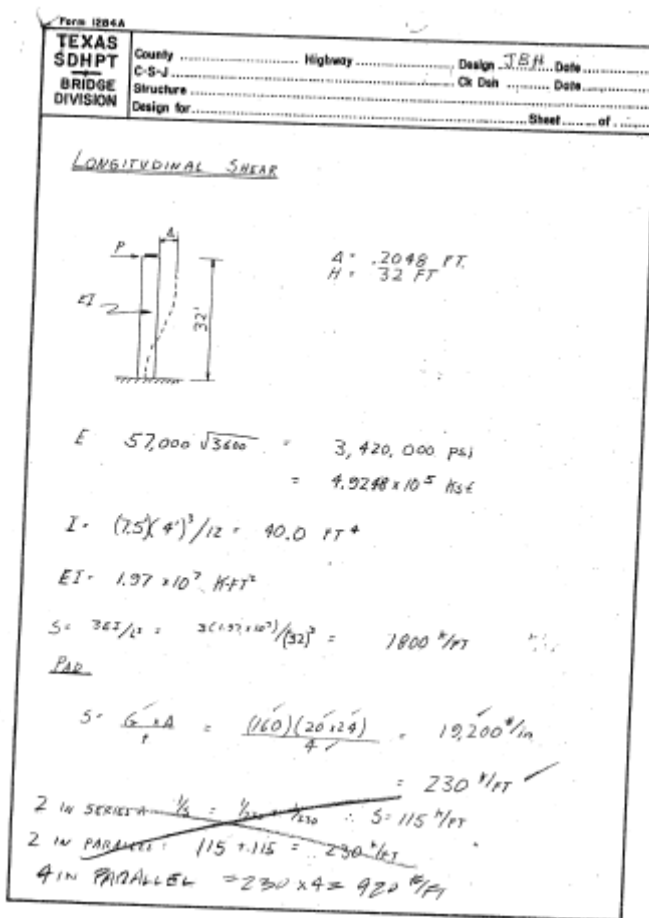 Form 1284A
TEXAS
SDHPT
BRIDGE
DIVISION
County Highway Design JBH Date
C-S-J Ck Dsn Date
Structure
Design for Sheet of
LONGITUDINAL SHEAR
P Δ
EI
32'
Δ = .2048 FT.
H = 32 FT
E 57,000 √3600 = 3,420,000 psi
= 4.9248 x 10⁵ Ksf
I = (7.5)(4')³/12 = 40.0 FT⁴
EI = 1.97 x 10⁷ K-FT²
S = 3EI/L³ = 3(1.97 x 10⁷)/(32)³ = 1800 K/FT
PAD
S = G x A / t = (160)(20 x 24) / 4 = 19,200 #/in
= 230 K/FT
2 IN SERIES 1/S = 1/230 + 1/230 ∴ S = 115 K/FT
2 IN PARALLEL: 115 + 115 = 230 K/FT
4 IN PARALLEL = 230 x 4 = 920 K/FT